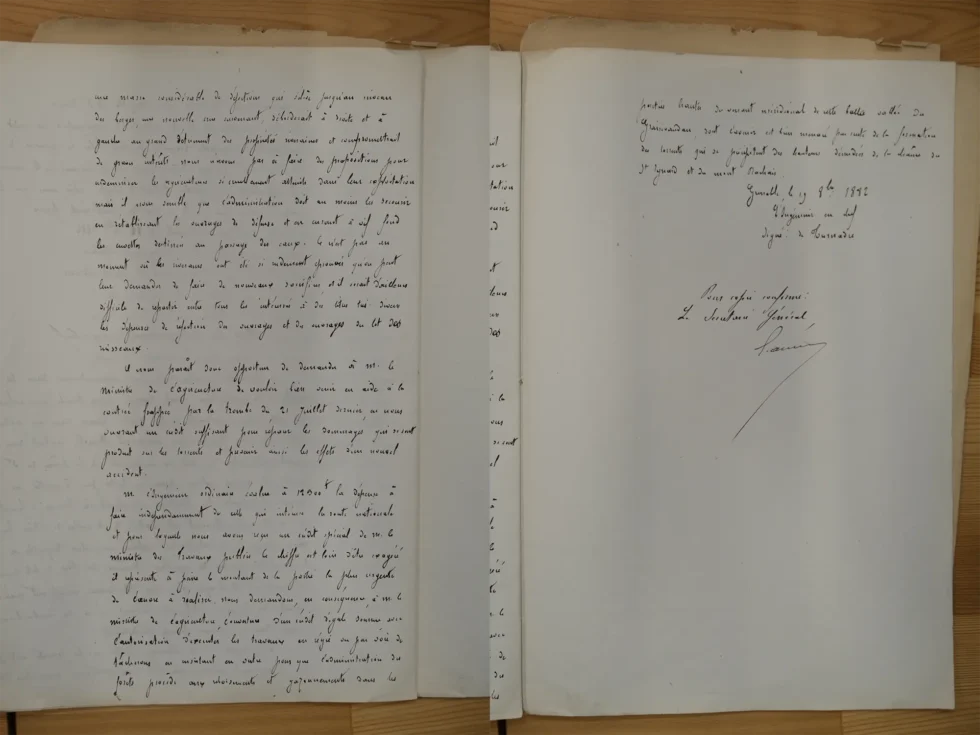 une masse considérable de déjections qui reste jusqu'au niveau
des berges, une nouvelle crue survenant, déborderait à droite et à
gauche au grand détriment des propriétés riveraines et compromettrait
de graves intérêts nous n'avons pas à faire des propositions pour
indemniser les agriculteurs si rudement atteints dans leur exploitation
mais il nous semble que l'administration doit au moins les secourir
en rétablissant les ouvrages de défense et en curant à vif fond
les cuvettes destinées au passage des eaux. Ce n'est pas au
moment où les riverains ont été si rudement éprouvés qu'on peut
leur demander de faire de nouveaux sacrifices, et il serait d'ailleurs
difficile de répartir entre tous les intéressés
les dépenses de réfection des ouvrages et du curage du lit des
ruisseaux.
Il nous paraît donc opportun de demander à M. le
Ministre de l'agriculture de vouloir bien venir en aide à la
contrée frappée par la trombe du 21 Juillet dernier, en nous
ouvrant un crédit suffisant pour réparer les dommages qui se sont
produit sur les torrents et prévenir aussi les effets d'un nouvel
accident.
M. l'Ingénieur ordinaire évalue à 12500f la dépense à
faire indépendamment de celle qui intéresse la route nationale
et pour laquelle nous avons reçu un crédit spécial de M. le
Ministre des Travaux publics le chiffre est loin d'être exagéré
il représente à peine le montant de la partie la plus urgente
de l'œuvre à réaliser, nous demandons, en conséquence, à M. le
Ministre de l'agriculture, l'ouverture d'un crédit d'égale somme avec
l'autorisation d'exécuter les travaux en régie ou par voie de
tâcherons en insistant en outre pour que l'administration des
forêts procède aux reboisements et gazonnements dans les
parties hautes du versant méridional de cette belle vallée du
Graisivaudan dont l'avenir est bien menacé par suite de la formation
des torrents qui se projettent des hauteurs dénudées de la chaîne du
St Eynard et du mont Rachais.
Grenoble, le 19 8bre 1882
L'Ingénieur en chef
signé : de Tournadre
Pour copie conforme :
Le Secrétaire Général